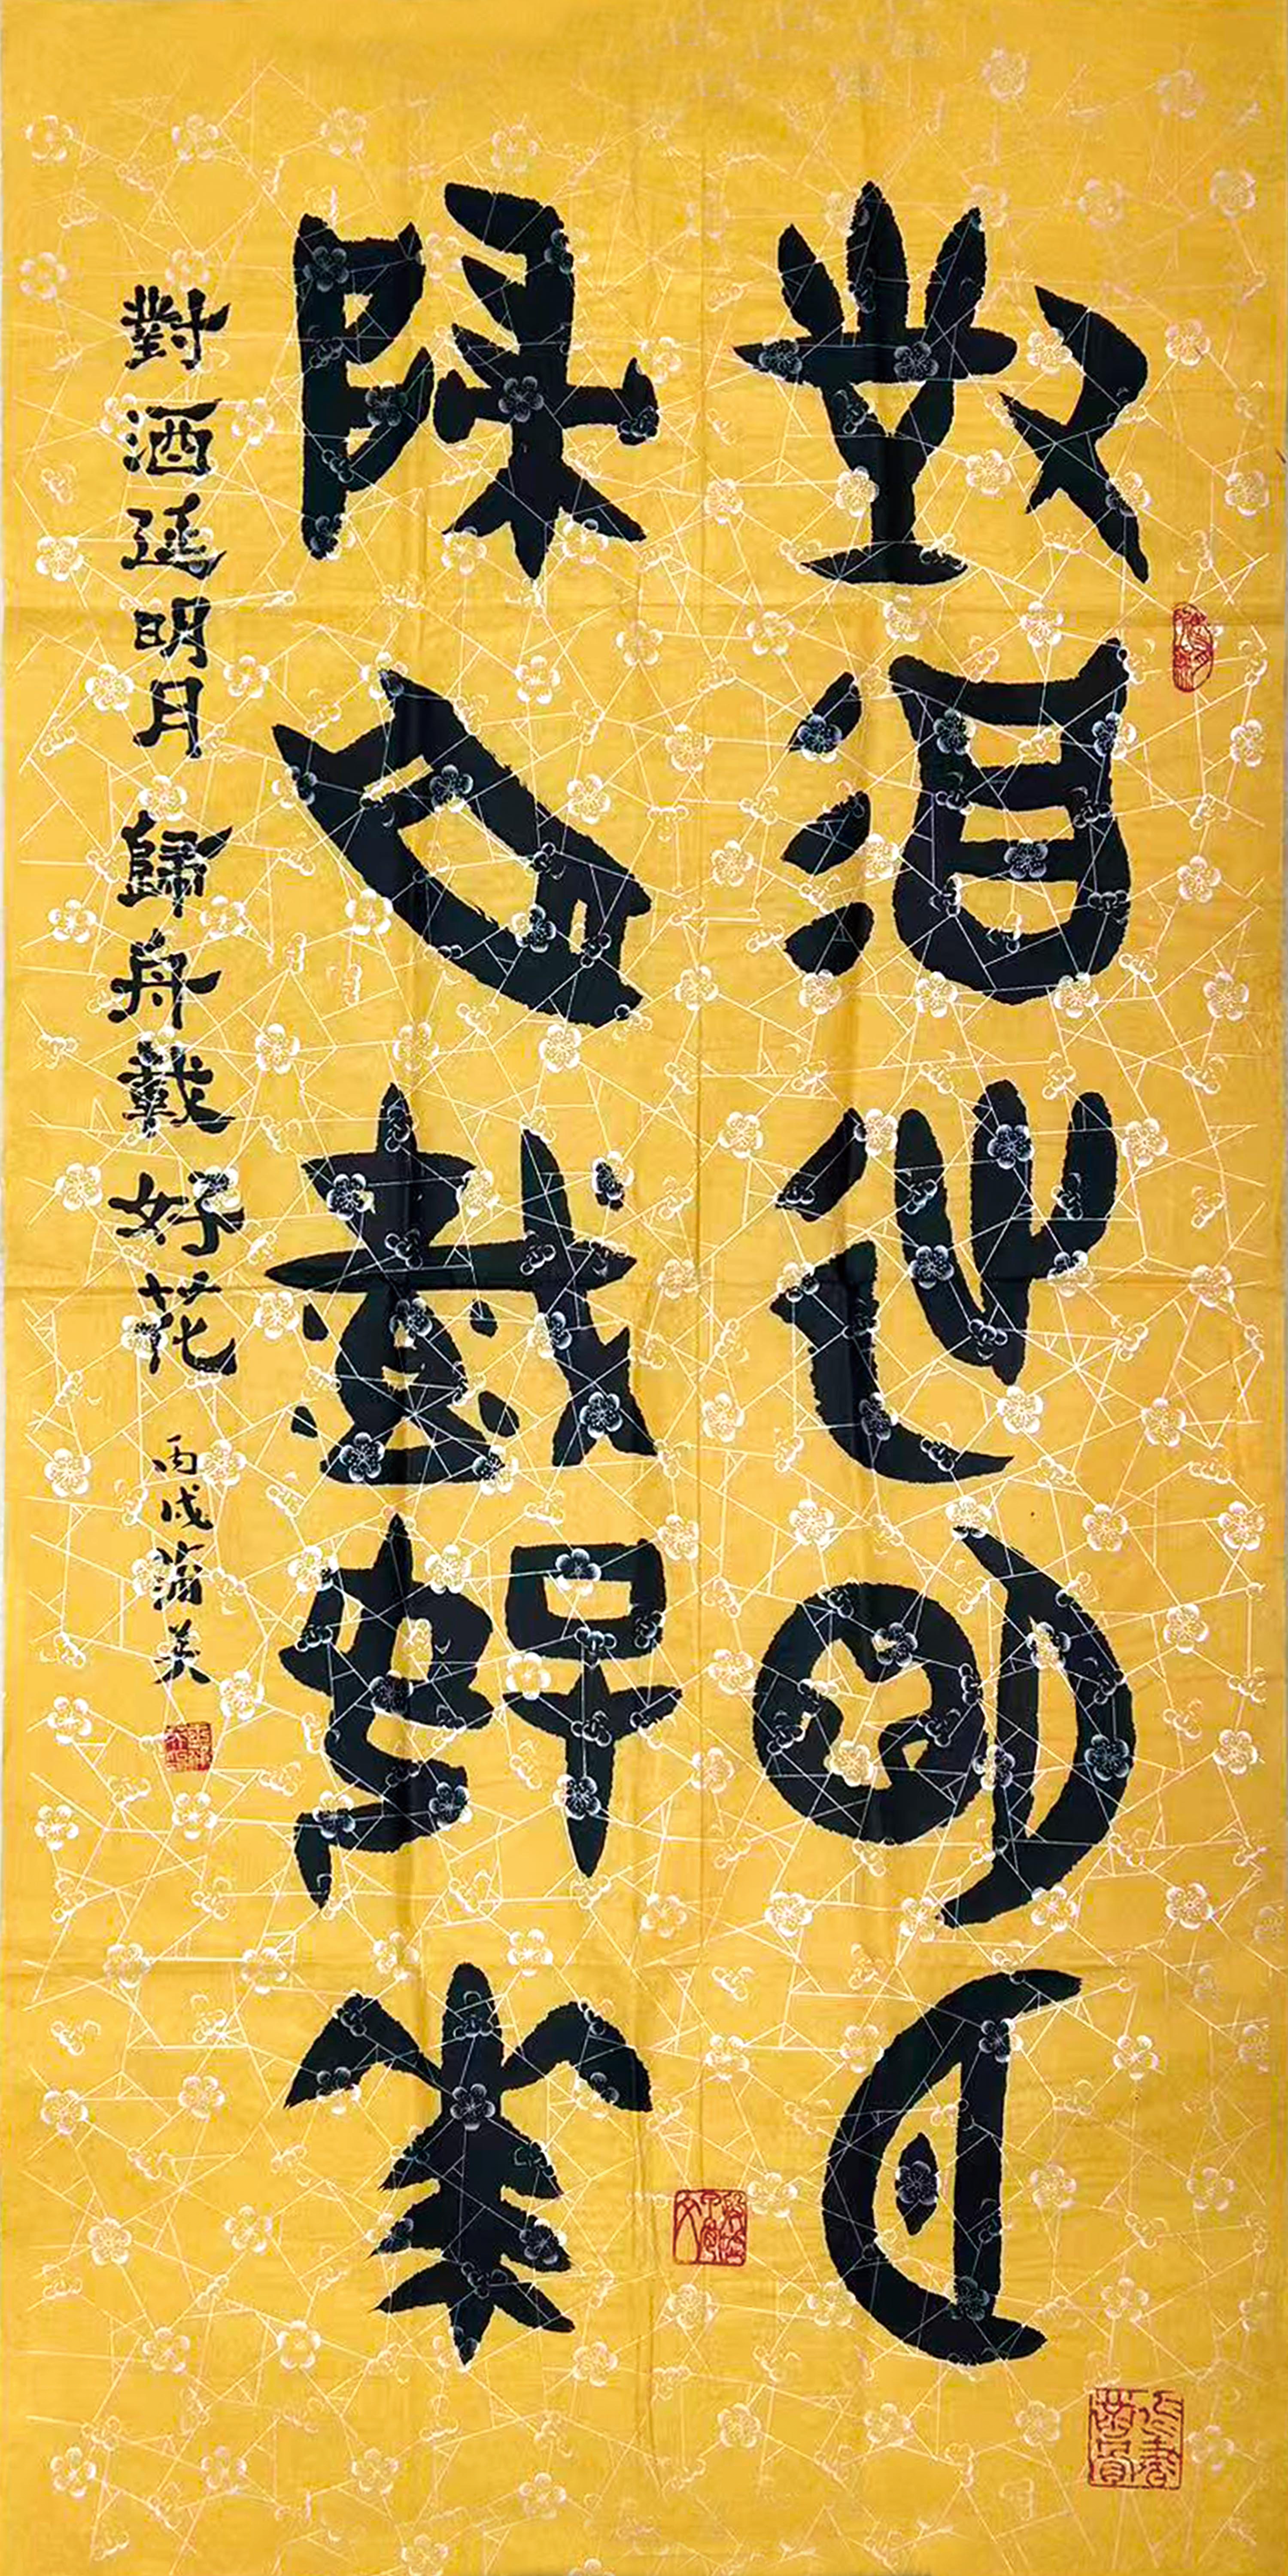 對酒延明月
歸舟載好花
對酒延明月歸舟載好花 丙戌蒲